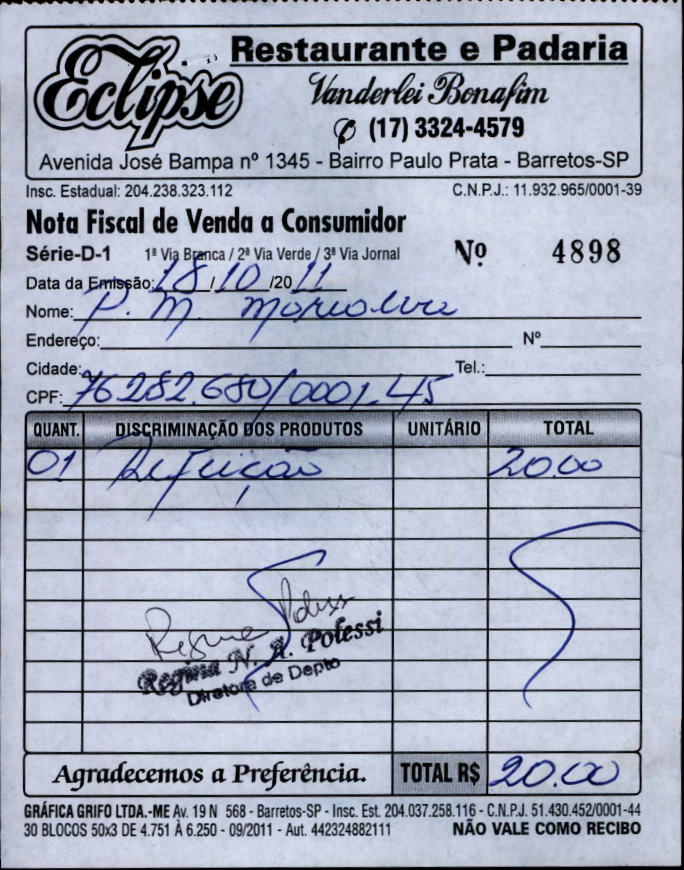 Eclipse
Restaurante e Padaria
Vanderlei Bonafim
(17) 3324-4579
Avenida José Bampa nº 1345 - Bairro Paulo Prata - Barretos-SP
Insc. Estadual: 204.238.323.112 C.N.P.J.: 11.932.965/0001-39
Nota Fiscal de Venda a Consumidor
Série-D-1 1ª Via Branca / 2ª Via Verde / 3ª Via Jornal Nº 4898
Data da Emissão: 18/10/2011
Nome: P. M.
Endereço: Nº
Cidade: Tel.:
CPF: 76282.680/0001.45
QUANT. DISCRIMINAÇÃO DOS PRODUTOS UNITÁRIO TOTAL
01 Refeição 20.00
Regina N. A. Polessi
Diretora de Depto
Agradecemos a Preferência. TOTAL R$ 20.00
GRÁFICA GRIFO LTDA.-ME Av. 19 N 568 - Barretos-SP - Insc. Est. 204.037.258.116 - C.N.P.J. 51.430.452/0001-44
30 BLOCOS 50x3 DE 4.751 À 6.250 - 09/2011 - Aut. 442324882111 NÃO VALE COMO RECIBO